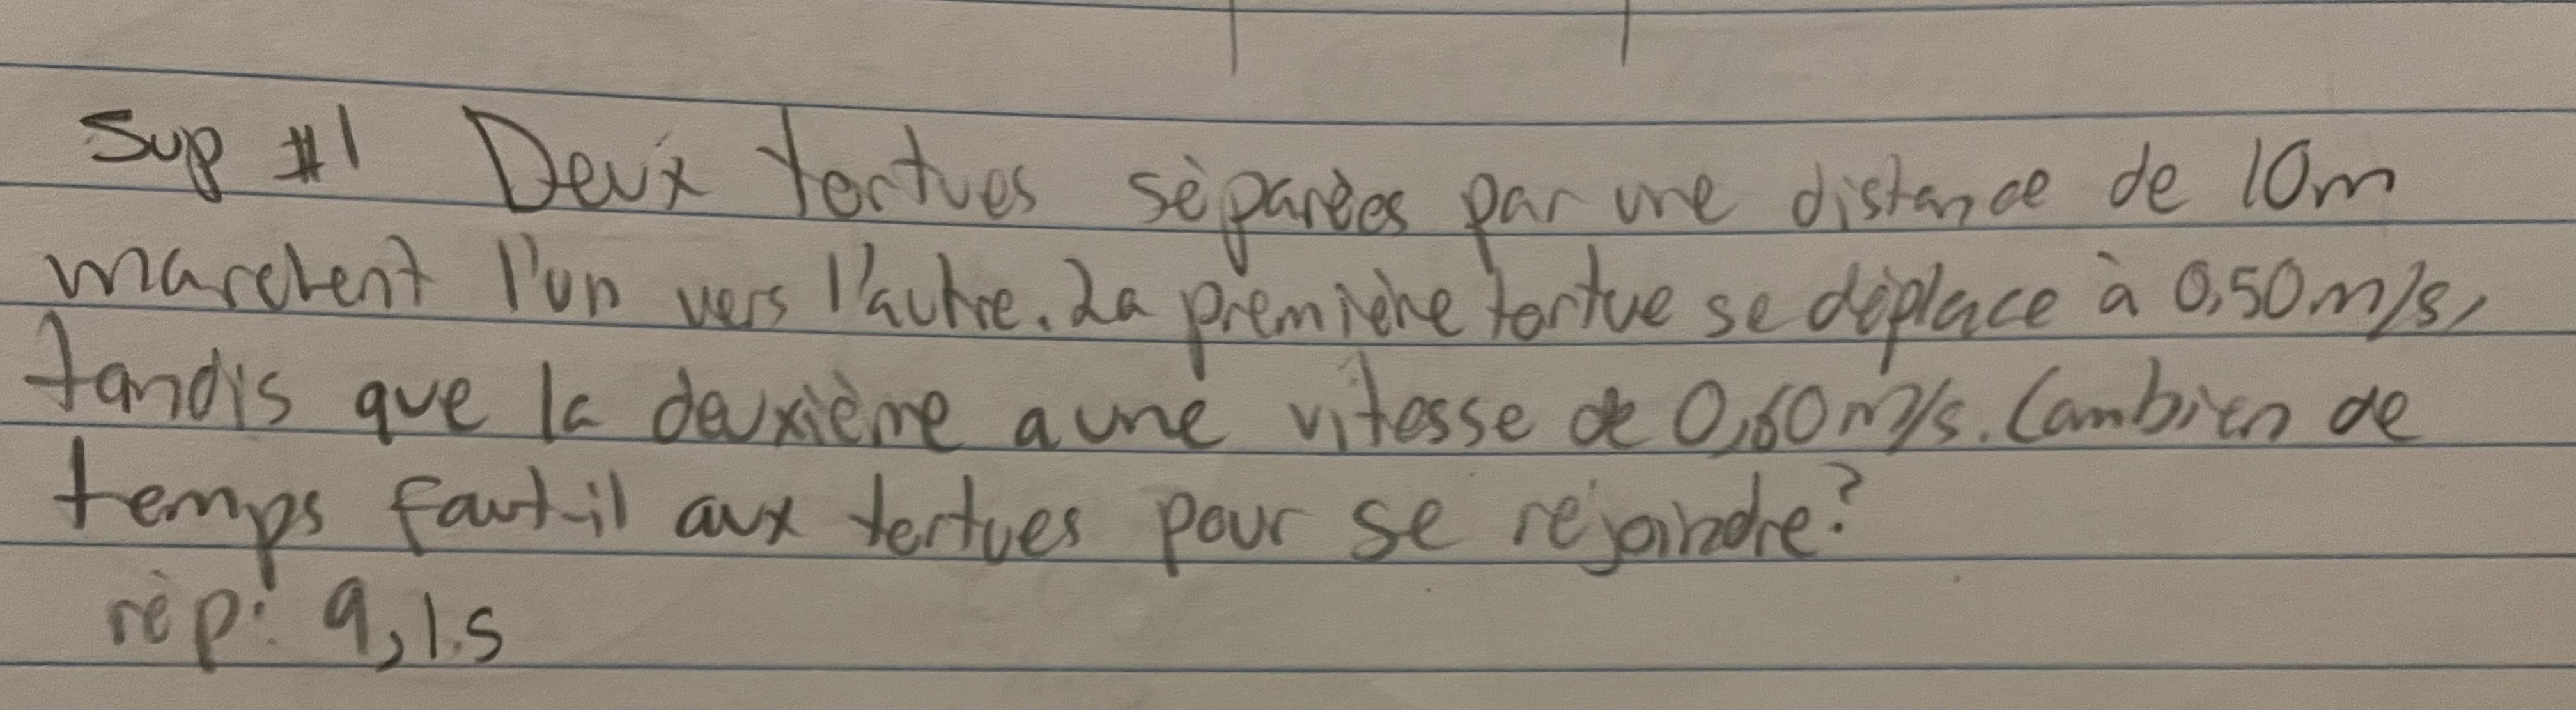 Sup #1 Deux tortues séparées par une distance de 10m
marchent l'un vers l'autre. La première tortue se déplace à 0,50m/s,
tandis que la deuxième a une vitesse de 0,60m/s. Combien de
temps faut-il aux tortues pour se rejoindre?
rép: 9,1.s